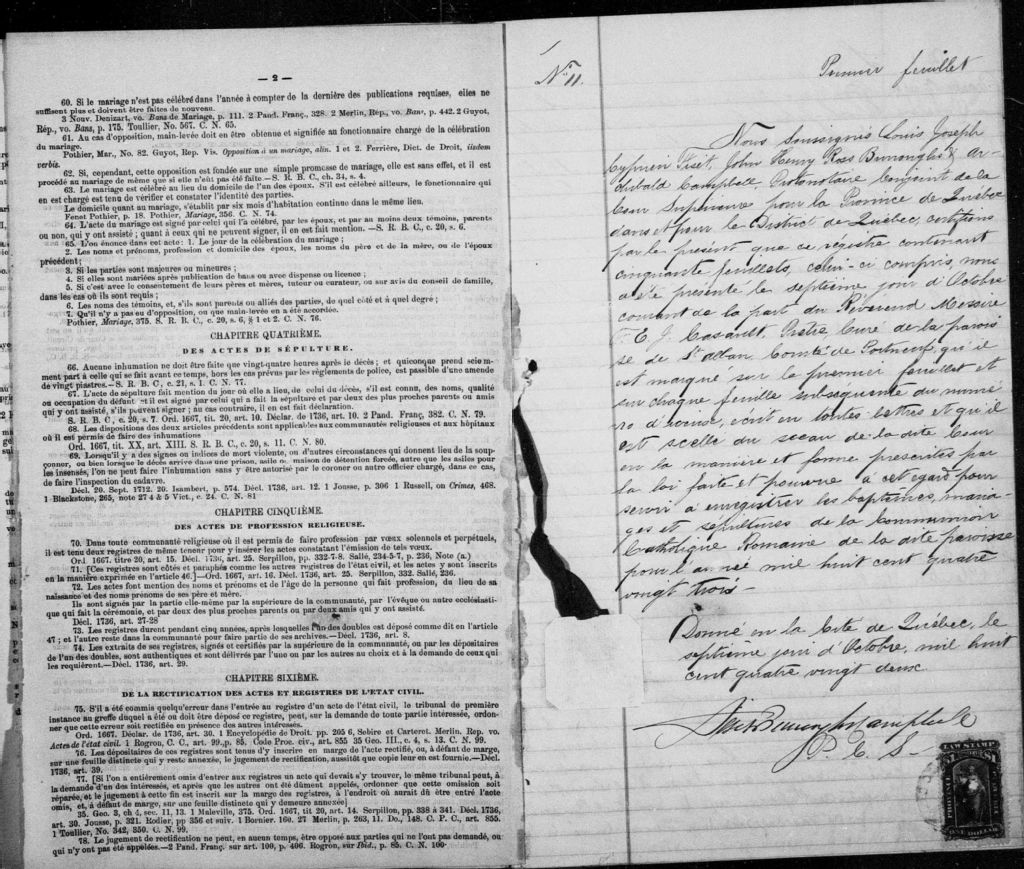 — 2 —
60. Si le mariage n'est pas célébré dans l'année à compter de la dernière des publications requises, elles ne
suffisent plus et doivent être faites de nouveau.
3 Nouv. Denizart, vo. Bans de Mariage, p. 111. 2 Pand. Franç., 328. 2 Merlin, Rép., vo. Banr, p. 442. 2 Guyot,
Rép., vo. Bans, p. 175. Toullier, No. 567. C. N. 65.
61. Au cas d'opposition, main-levée doit en être obtenue et signifiée au fonctionnaire chargé de la célébration
du mariage.
Pothier, Mar., No. 82. Guyot, Rep. Vis. Opposition à un mariage, alin. 1 et 2. Ferrière, Dict. de Droit, iisdem
verbis.
62. Si, cependant, cette opposition est fondée sur une simple promesse de mariage, elle est sans effet, et il est
procédé au mariage de même que si elle n'eût pas été faite.—S. R. B. C., ch. 34, s. 4.
63. Le mariage est célébré au lieu du domicile de l'un des époux. S'il est célébré ailleurs, le fonctionnaire qui
en est chargé est tenu de vérifier et constater l'identité des parties.
Le domicile quant au mariage, s'établit par six mois d'habitation continue dans le même lieu.
Fenet Pothier, p. 18. Pothier, Mariage, 356. C. N. 74.
64. L'acte du mariage est signé par celui qui l'a célébré, par les époux, et par au moins deux témoins, parents
ou non, qui y ont assisté ; quant à ceux qui ne peuvent signer, il en est fait mention. —S. R. B. C., c. 20, s. 6.
65. L'on énonce dans cet acte : 1. Le jour de la célébration du mariage ;
2. Les noms et prénoms, profession et domicile des époux, les noms du père et de la mère, ou de l'époux
précédent ;
3. Si les parties sont majeures ou mineures ;
4. Si elles sont mariées après publication de bans ou avec dispense ou licence ;
5. Si c'est avec le consentement de leurs pères et mères, tuteur ou curateur, ou sur avis du conseil de famille,
dans les cas où ils sont requis ;
6. Les noms des témoins, et, s'ils sont parents ou alliés des parties, de quel côté et à quel degré ;
7. Qu'il n'y a pas eu d'opposition, ou que main-levée en a été accordée.
Pothier, Mariage, 375. S. R. B. C., c. 20, s. 6, § 1 et 2. C. N. 76.
CHAPITRE QUATRIÈME.
DES ACTES DE SÉPULTURE.
66. Aucune inhumation ne doit être faite que vingt-quatre heures après le décès ; et quiconque prend sciemment
part à celle qui se fait avant ce temps, hors les cas prévus par les règlements de police, est passible d'une amende
de vingt piastres.—S. R. B. C., c. 21, s. 1. C. N. 77.
67. L'acte de sépulture fait mention du jour où elle a lieu, de celui du décès, s'il est connu, des noms, qualité
ou occupation du défunt et il est signé par celui qui a fait la sépulture et par deux des plus proches parents ou amis
qui y ont assisté, s'ils peuvent signer ; au cas contraire, il en est fait déclaration.
S. R. B. C., c. 20, s. 7. Ord. 1667, tit. 20, art. 10. Déclar. de 1736, art. 10. 2 Pand. Franç, 382. C. N. 79.
68. Les dispositions des deux articles précédents sont applicables aux communautés religieuses et aux hôpitaux
où il est permis de faire des inhumations
Ord. 1667, tit. XX, art. XIII. S. R. B. C., c. 20, s. 11. C. N. 80.
69. Lorsqu'il y a des signes ou indices de mort violente, ou d'autres circonstances qui donnent lieu de la soupçonner,
ou bien lorsque le décès arrive dans une prison, asile ou maison de détention forcée, autre que les asiles pour
les insensés, l'on ne peut faire l'inhumation sans y être autorisé par le coroner ou autre officier chargé, dans ce cas,
de faire l'inspection du cadavre.
Décl. 20. Sept. 1712. 20. Isambert, p. 574. Décl. 1736, art. 12. 1 Jousse, p. 306 1 Russell, on Crimes, 468.
1 Blackstone, 265, note 27 4 & 5 Vict., c. 24. C. N. 81
CHAPITRE CINQUIÈME.
DES ACTES DE PROFESSION RELIGIEUSE.
70. Dans toute communauté religieuse où il est permis de faire profession par vœux solennels et perpétuels,
il est tenu deux registres de même teneur pour y insérer les actes constatant l'émission de tels vœux.
Ord. 1667, titre 20, art. 15. Décl. 1736, art. 25. Serpillon, pp. 332-7-8. Sallé, 234-5-7, p. 236, Note (a.)
71. [Ces registres sont côtés et paraphés comme les autres registres de l'état civil, et les actes y sont inscrits
en la manière exprimée en l'article 46.]—Ord. 1667, art. 16. Décl. 1736, art. 25. Serpillon, 332. Sallé, 236.
72. Les actes font mention des noms et prénoms et de l'âge de la personne qui fait profession, du lieu de sa
naissance et des noms prénoms de ses père et mère.
Ils sont signés par la partie elle-même par la supérieure de la communauté, par l'évêque ou autre ecclésiastique
qui fait la cérémonie, et par deux des plus proches parents ou par deux amis qui y ont assisté.
Décl. 1736, art. 27-28
73. Les registres durent pendant cinq années, après lesquelles l'un des doubles est déposé comme dit en l'article
47 ; et l'autre reste dans la communauté pour faire partie de ses archives.—Décl. 1736, art. 8.
74. Les extraits de ses registres, signés et certifiés par la supérieure de la communauté, ou par les dépositaires
de l'un des doubles, sont authentiques et sont délivrés par l'une ou par les autres au choix et à la demande de ceux qui
les requièrent.—Décl. 1736, art. 29.
CHAPITRE SIXIÈME.
DE LA RECTIFICATION DES ACTES ET REGISTRES DE L'ETAT CIVIL.
75. S'il a été commis quelqu'erreur dans l'entrée au registre d'un acte de l'état civil, le tribunal de première
instance au greffe duquel a été ou doit être déposé ce registre, peut, sur la demande de toute partie intéressée, ordonner
que cette erreur soit rectifiée en présence des autres intéressés.
Ord. 1667. Déclar. de 1736, art. 30. 1 Encyclopédie de Droit. pp. 205 6, Sebire et Carteret. Merlin. Rep. vo.
Actes de l'état civil. 1 Rogron, C. C., art. 99., p. 85. Code Proc. civ., art. 855 35 Geo. III., c. 4, s. 13. C. N. 99.
76. Les dépositaires de ces registres sont tenus d'y inscrire en marge de l'acte rectifié, ou, à défaut de marge,
sur une feuille distincte qui y reste annexée, le jugement de rectification, aussitôt que copie leur en est fournie.—Décl.
1736, art. 39.
77. [Si l'on a entièrement omis d'entrer aux registres un acte qui devait s'y trouver, le même tribunal peut, à
la demande d'un des intéressés, et après que les autres ont été dûment appelés, ordonner que cette omission soit
réparée, et le jugement à cette fin est inscrit sur la marge des registres, à l'endroit où aurait dû être entré l'acte
omis, et, à défaut de marge, sur une feuille distincte qui y demeure annexée]
35. Geo. 3, ch 4, sec. 11, 13. 1 Maleville, 375. Ord. 1667, tit 20, art. 14. Serpillon, pp. 338 à 341. Décl. 1736,
art. 30. Jousse, p. 321. Rodier, pp 356 et suiv. 1 Bornier. 160. 27 Merlin, p. 263, 11. Do., 148. C. P. C., art. 855.
1 Toullier, No. 342, 350. C. N. 99.
78. Le jugement de rectification ne peut, en aucun temps, être opposé aux parties qui ne l'ont pas demandé, ou
qui n'y ont pas été appelées.—2 Pand. Franç. sur art. 100, p. 406. Rogron, sur Ibid., p. 85. C. N. 100.
No 11.
Premier feuillet
Nous Soussignés Louis Joseph
Cyprien Fiset, John Henry Ross Burroughs & Archibald
Campbell Protonotaire Conjoint de la
Cour Supérieure pour la Province de Québec
dans et pour le District de Québec, certifions
par le présent que ce registre contenant
cinquante feuillets, celui-ci compris, nous
a été présenté le septième jour d'Octobre
courant de la part du Révérend Messire
F. E. J. Casault, Prêtre Curé de la paroisse
de St Alban, Comté de Portneuf, qu'il
est marqué sur le premier feuillet et
sur chaque feuille subséquente du numéro
d'iceux, écrit en toutes lettres et qu'il
est scellé du sceau de la dite Cour
en la manière et forme prescrites par
la loi faite et pourvue à cet égard pour
servir à enregistrer les baptêmes, mariages
et sépultures de la Communion
Catholique Romaine de la dite paroisse
pour l'année mil huit cent quatre
vingt trois—
Donné en la Cité de Québec, le
septième jour d'Octobre, mil huit
cent quatre vingt deux
Fiset Burroughs Campbell
P. C. S—
LAW STAMP
$1
ONE DOLLAR